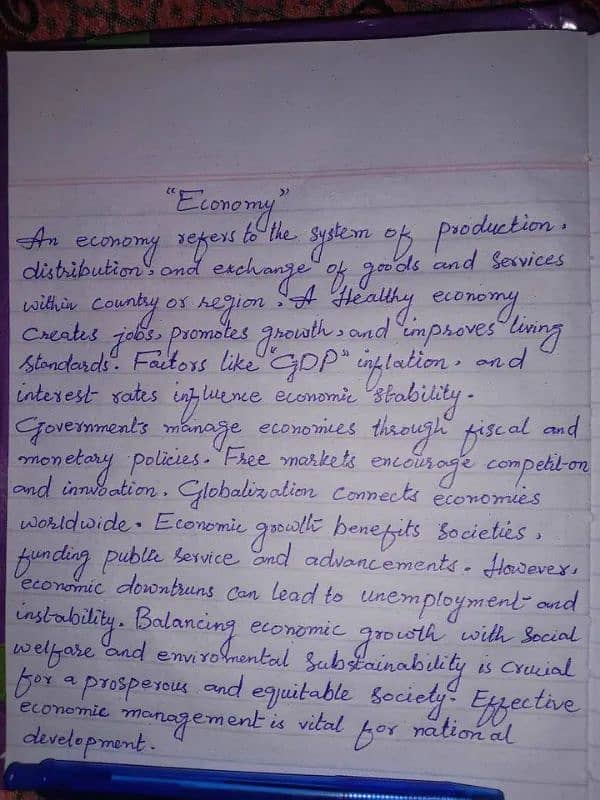 "Economy"
An economy refers to the system of production,
distribution, and exchange of goods and services
within country or region. A Healthy economy
creates jobs, promotes growth, and improves living
standards. Factors like "GDP" inflation, and
interest rates influence economic stability.
Governments manage economies through fiscal and
monetary policies. Free markets encourage competit-on
and innvoation. Globalization connects economies
worldwide. Economic growth benefits societies,
funding public service and advancements. However,
economic downtruns can lead to unemployment and
instability. Balancing economic growth with social
welfare and enviromental substainability is crucial
for a prosperous and equitable society. Effective
economic management is vital for national
development.